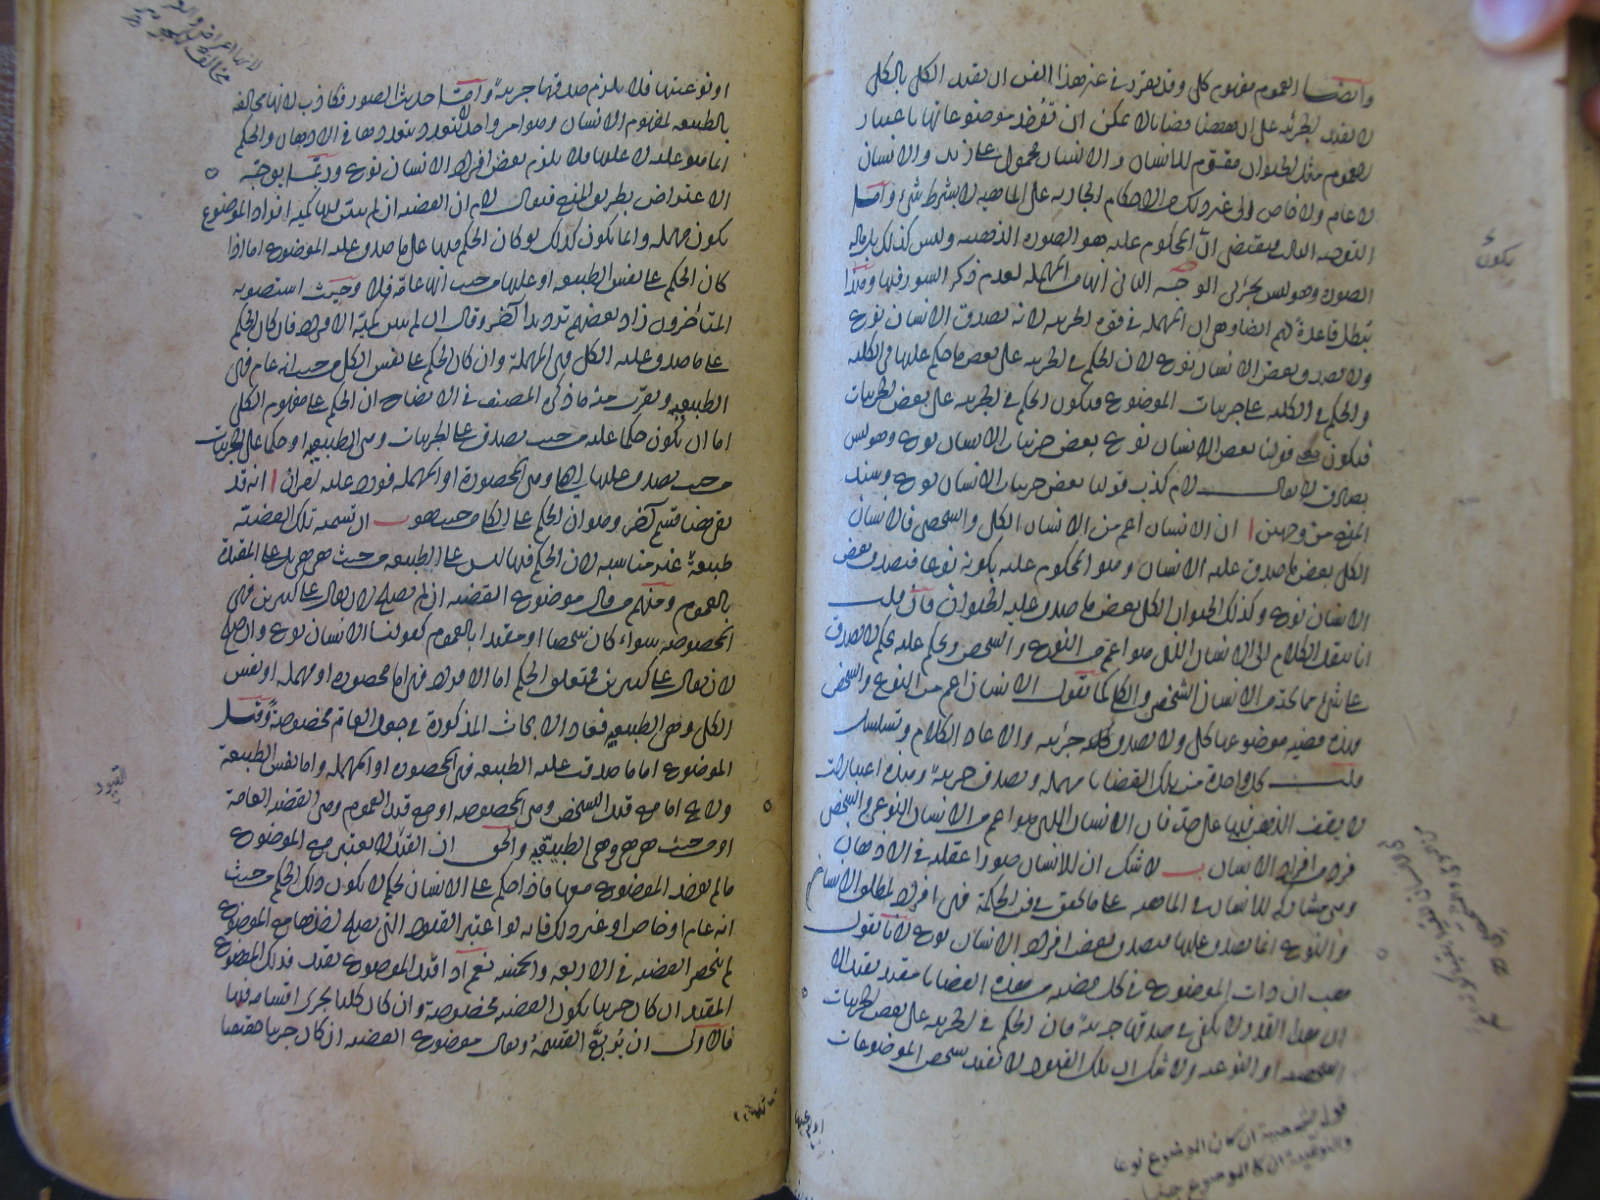 وايضا العموم مفهوم كلي وقد تقرر في غير هذا الفن ان تقييد الكلي بالكلي
لا يفيد الجزئية على ان ههنا قضايا لا يمكن ان تؤخذ موضوعاتها باعتبار
العموم مثل الحيوان مقوم للانسان والانسان محمول على زيد والانسان
لا عام ولا خاص الى غير ذلك من الاحكام الجارية على الماهية لا بشرط شئ واما
التوجيه الثالث فيقتضي ان المحكوم عليه هو الصورة الذهنية وليس كذلك بل ماله
الصورة وهو ليس بجزئي الوجه الثاني انها من المهملة لعدم ذكر السور فيها وهذا
يبطل قاعدة لهم ايضا وهي ان المهملة في قوة الجزئية لانه تصدق الانسان نوع
ولا يصدق بعض الانسان نوع لان الحكم في الجزئية على بعض ما حكم عليها في الكلية
والحكم في الكلية على جزئيات الموضوع فيكون الحكم في الجزئية على بعض الجزئيات
فيكون قولنا بعض الانسان نوع بعض جزئيات الانسان نوع وهو ليس
بصادق لا يقال لانم كذب قولنا بعض جزئيات الانسان نوع وسند
المنع من وجهين ا ان الانسان اعم من الانسان الكلي والشخصي فالانسان
الكلي بعض ما صدق عليه الانسان وهو المحكوم عليه بكونه نوعا فيصدق بعض
الانسان نوع وكذلك الحيوان الكلي بعض ما صدق عليه الحيوان فان قلت
انا ننقل الكلام الى الانسان الذي هو اعم من النوع والشخص ونحكم عليه بحكم لا يصدق
على شئ مما تحته من الانسان الشخصي والكلي كما نقول الانسان اعم من النوع والشخص
فهذه قضية موضوعها كلي ولا يصدق جزئية والا عاد الكلام وتسلسل
قلت كل واحدة من تلك القضايا مهملة وتصدق جزئية وهذه اعتبارات
لا يقف الذهن فيها على حد فان الانسان الذي هو اعم من الانسان النوعي والشخصي
فرد من افراد الانسان ب لا شك ان للانسان صورا عقلية في الاذهان
وهي مشاركة للانسان في الماهية على ما تحقق في فن الحكمة فهي افراد لمطلق الانسان
والنوع انما يصدق عليها فيصدق بعض افراد الانسان نوع لانا نقول
هب ان ذات الموضوع في كل قضية من هذه القضايا مقيد بقيد الا
ان هذا القدر لا يكفي في صدقها جزئية فان الحكم في الجزئية على بعض الجزئيات
الشخصية او النوعية ولا شك ان تلك القيود لا تفيد شخص الموضوعات
يكون
قوله الشخصية ان كان الموضوع نوعا
والنوعية ان كان الموضوع جنسا
او نوعيتها فلا يلزم صدقها جزئية واما حديث الصور فكاذب لانها مخالفة
بالطبيعة لمفهوم الانسان وهو امر واحد لا يتعدد بتعددها في الاذهان والحكم
انما هو عليه لا عليها فلا يلزم بعض افراد الانسان نوع وربما يوجه
الاعتراض بطريق المنع فيقال لانم ان القضية ان لم يبين فيها كمية افراد الموضوع
يكون مهملة وانما يكون كذلك لو كان الحكم فيها على ما صدق عليه الموضوع اما اذا
كان الحكم على نفس الطبيعة او عليها من حيث انها عامة فلا وحيث استصوبه
المتاخرون زاد بعضهم ترديدا آخر وقال ان لم يبين كمية الافراد فان كان الحكم
على ما صدق عليه الكلي فهي المهملة وان كان الحكم على نفس الكلي من حيث انه عام فهي
الطبيعية ويقرب منه ما ذكره المصنف في الايضاح ان الحكم على مفهوم الكلي
اما ان يكون حكما عليه من حيث يصدق على الجزئيات وهي الطبيعية او حكما على الجزئيات
من حيث يصدق عليها وهي المحصورة او المهملة فورد عليه نظران ا انه قد
بقي ههنا قسم آخر وهو ان الحكم على الكلي من حيث هو ب ان تسمية تلك القضية
طبيعية غير مناسبة لان الحكم فيها ليس على الطبيعة من حيث هي هي بل على المقيدة
بالعموم ومنهم من قال موضوع القضية ان لم يصلح لان يقال على كثيرين فهي
المخصوصة سواء كان شخصا او مقيدا بالعموم كقولنا الانسان نوع وان صلح
لان يقال على كثيرين فمتعلق الحكم اما الافراد فهي اما محصورة او مهملة او نفس
الكلي وهي الطبيعية فعاد الابحاث المذكورة في جعل العام مخصوصة وقيل
الموضوع اما ما صدقت عليه الطبيعة فهي المحصورة او المهملة واما نفس الطبيعة
ولا يخ اما مع قيد الشخص وهي المخصوصة او مع قيد العموم وهي القضية العامة
او من حيث هي هي وهي الطبيعية والحق ان القيد لا يعتبر مع الموضوع
ما لم يؤخذ الموضوع معها فاذا حكم على الانسان بحكم لا يكون ذلك الحكم من حيث
انه عام او خاص او غير ذلك فانه لو اعتبر القيود التي يصلح لاخذها مع الموضوع
لم تنحصر القضية في الاربعة والخمسة نعم اذا قيد الموضوع بقيد فذلك الموضوع
المقيد ان كان جزئيا يكون القضية مخصوصة وان كان كليا يجري اقسامه فيها
فالاولى ان يربع القسمة ويقال موضوع القضية ان كان جزئيا حقيقيا
القيود